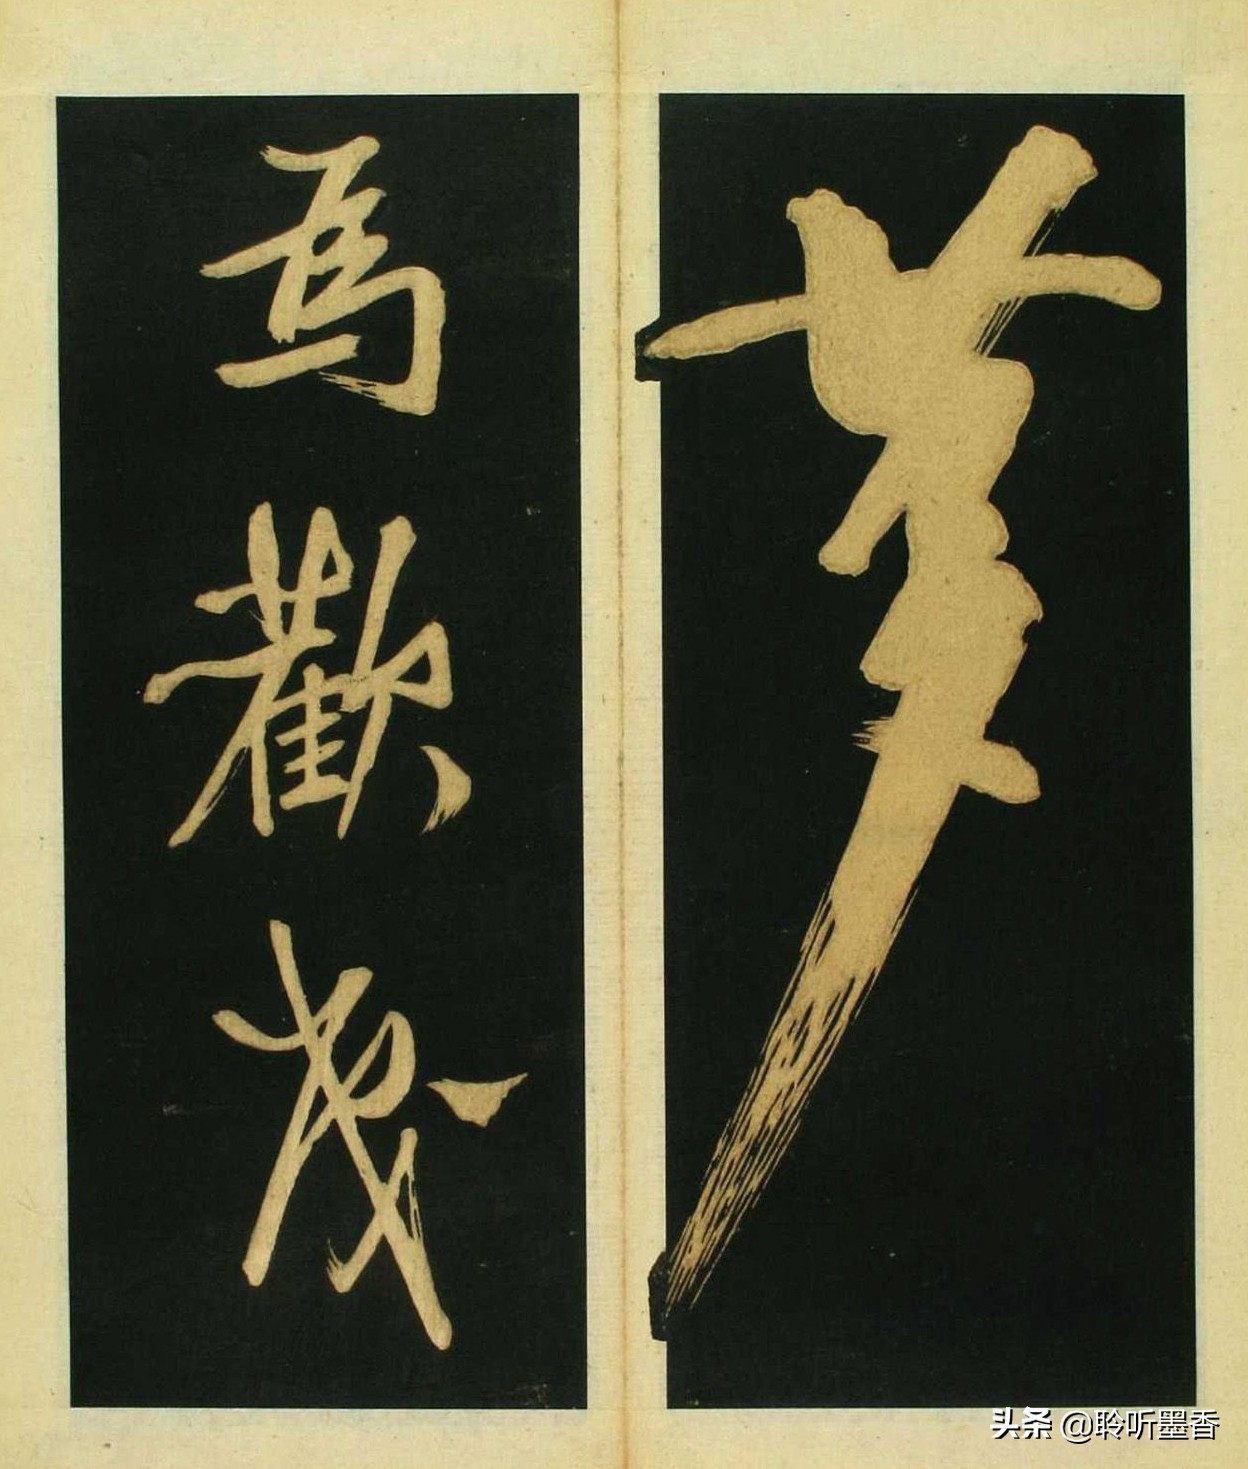 夢
為歡幾
头条 @聆听墨香